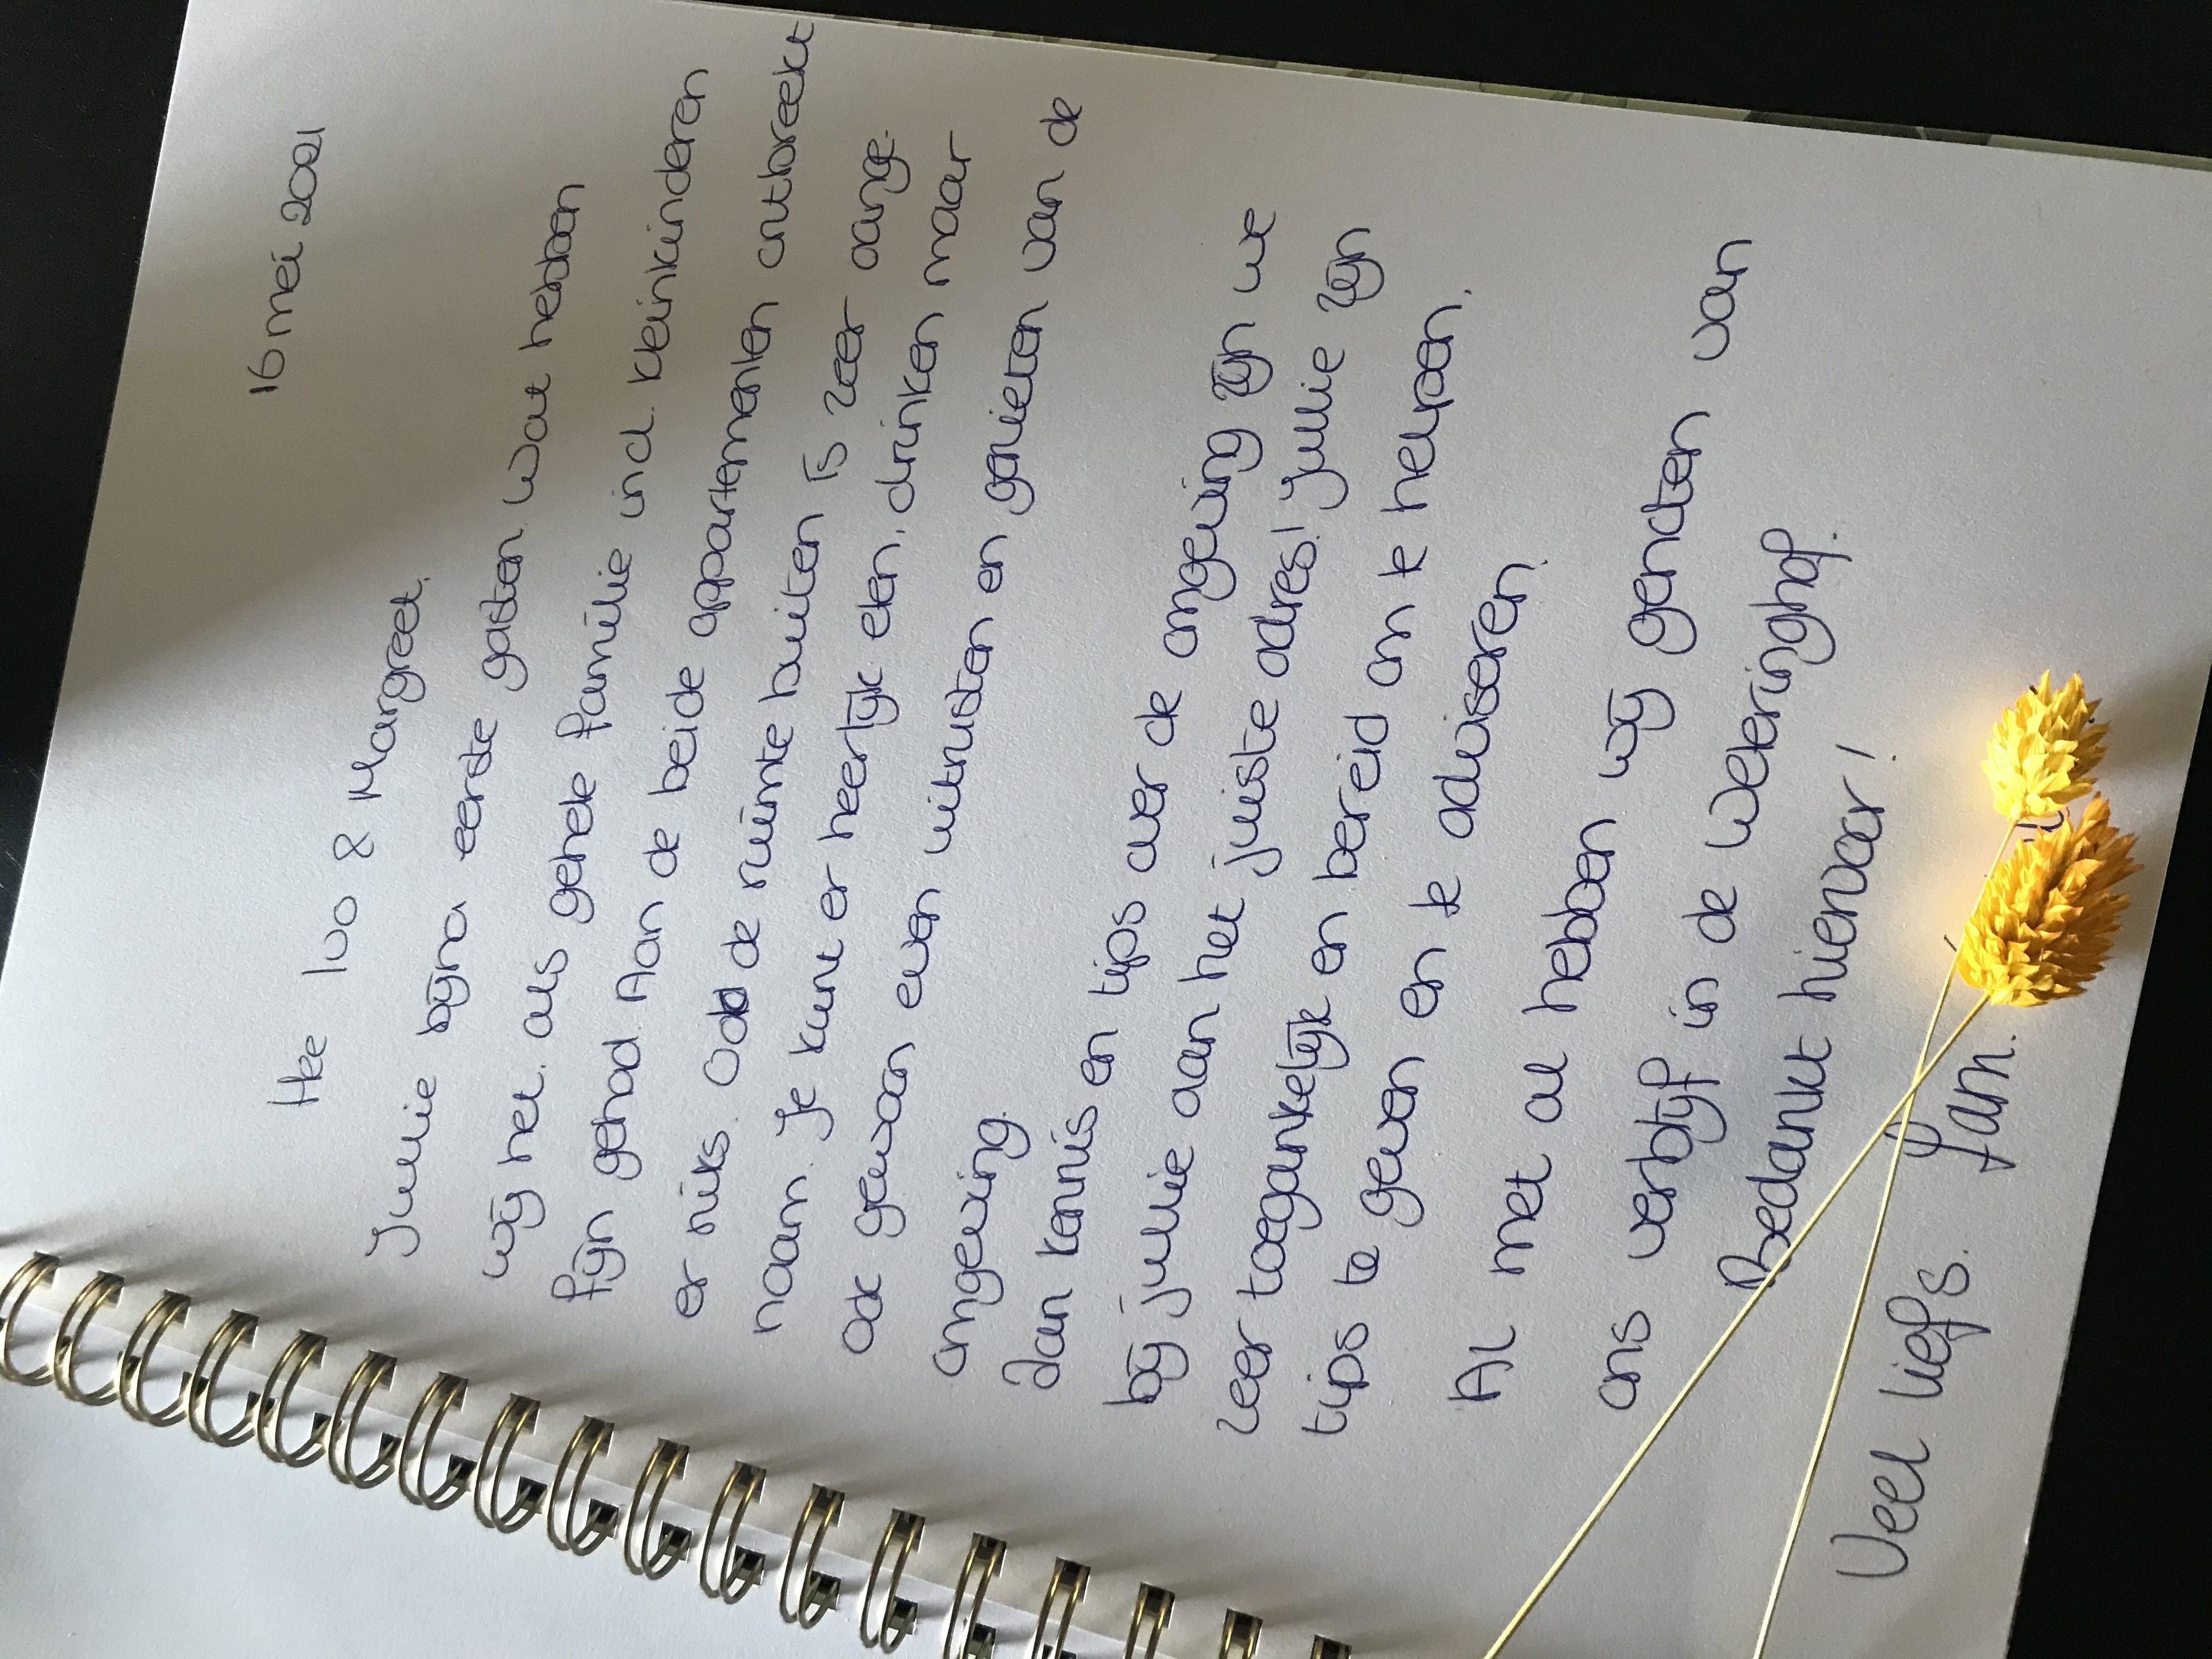 16 mei 2021
Hee Ivo & Margreet.
Jullie bijna eerste gasten. Wat hebben
wij het. als gehele familie incl. kleinkinderen
fijn gehad. Aan de beide appartementen ontbreekt
er niks. Ook de ruimte buiten is zeer aange-
naam. Je kunt er heerlijk eten, drinken maar
ook gewoon even uitrusten en genieten van de
omgeving.
Aan kennis en tips over de omgeving zijn we
bij jullie aan het juiste adres! Jullie zijn
zeer toegankelijk en bereid om te helpen.
tips te geven en te adviseren.
Al met al hebben wij genoten van
ons verblijf in de Weteringhof.
Bedankt hiervoor!
Veel liefs. fam.